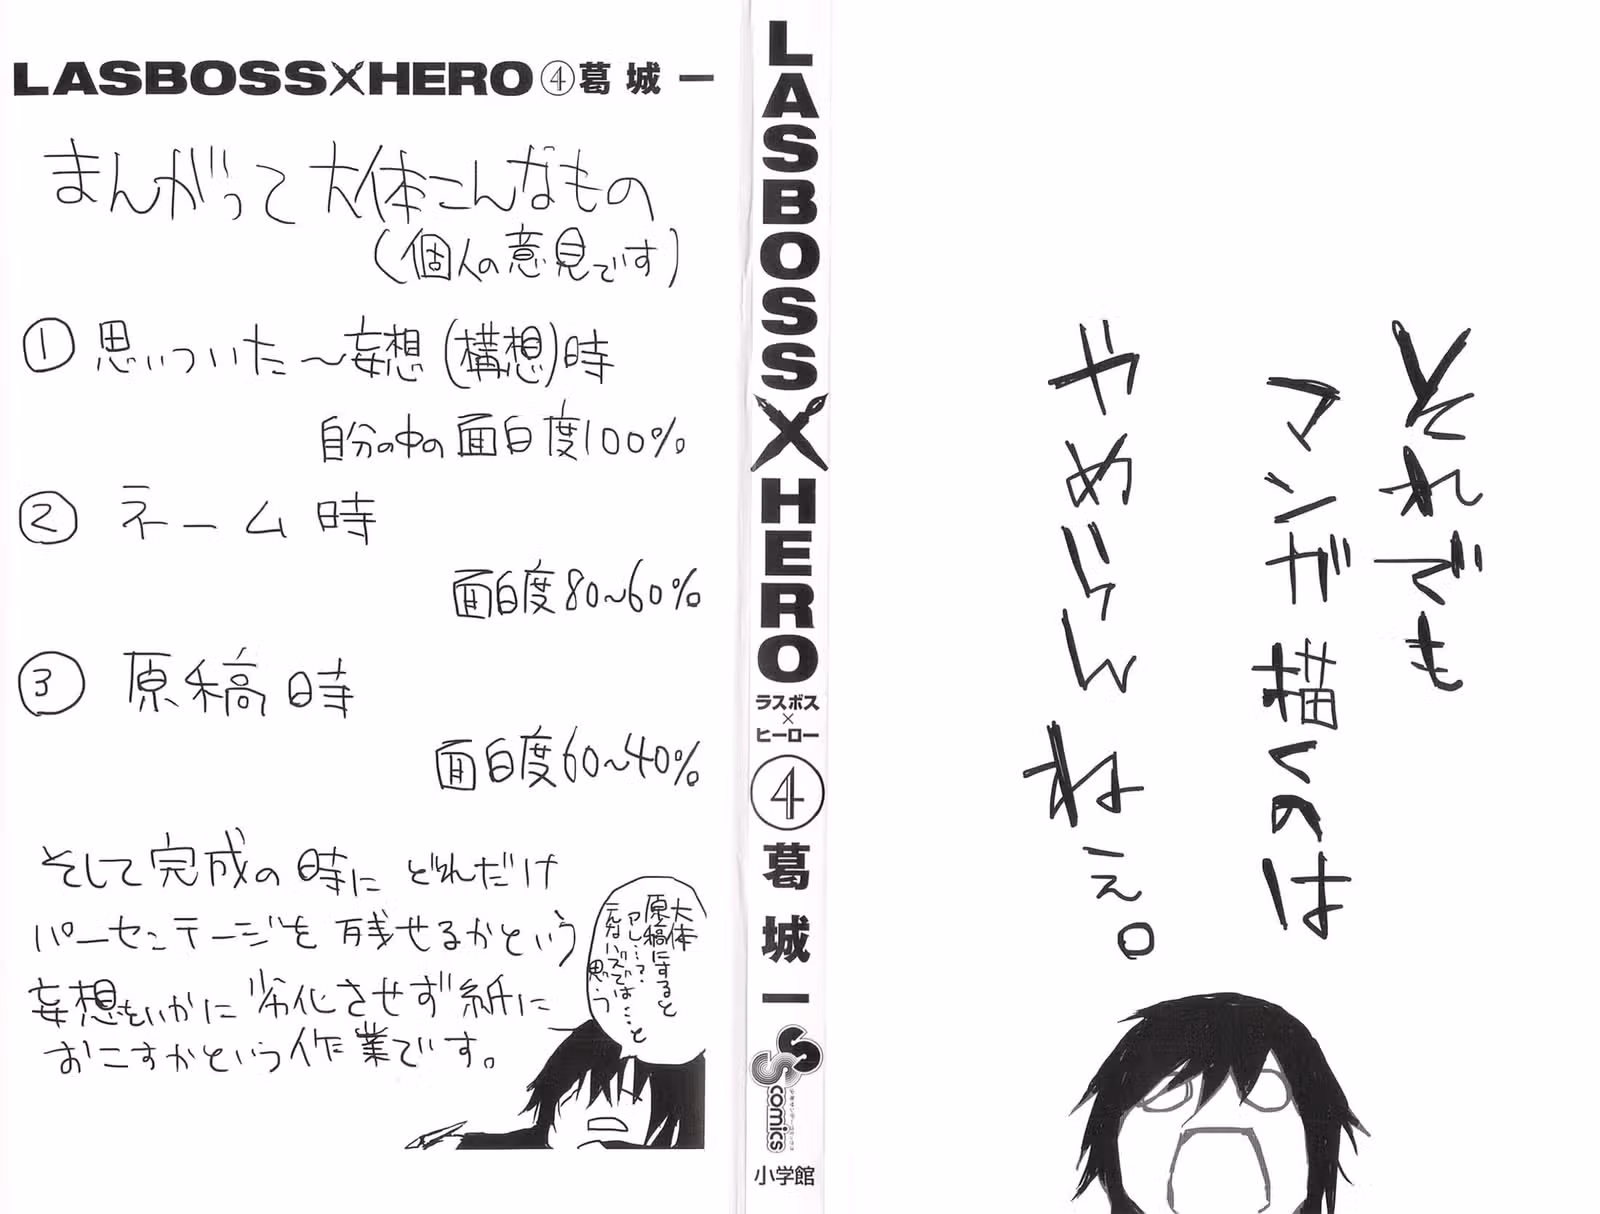 LASBOSS×HERO④葛城一
まんがって大体こんなもの
(個人の意見です)
① 思いついた〜妄想(構想)時
自分の中の面白度100%
② ネーム時
面白度80〜60%
③ 原稿時
面白度60〜40%
そして完成の時にどれだけ
パーセンテージを残せるかという
妄想をいかに劣化させず紙に
おこすかという作業です。
大体
原稿にすると
アレ…?
こんなハズでは…と
思う
LASBOSS×HERO
ラスボス
×
ヒーロー
④
葛城一
SS
comics
少年サンデーコミックス
小学館
それでも
マンガ描くのは
やめらんねぇ。